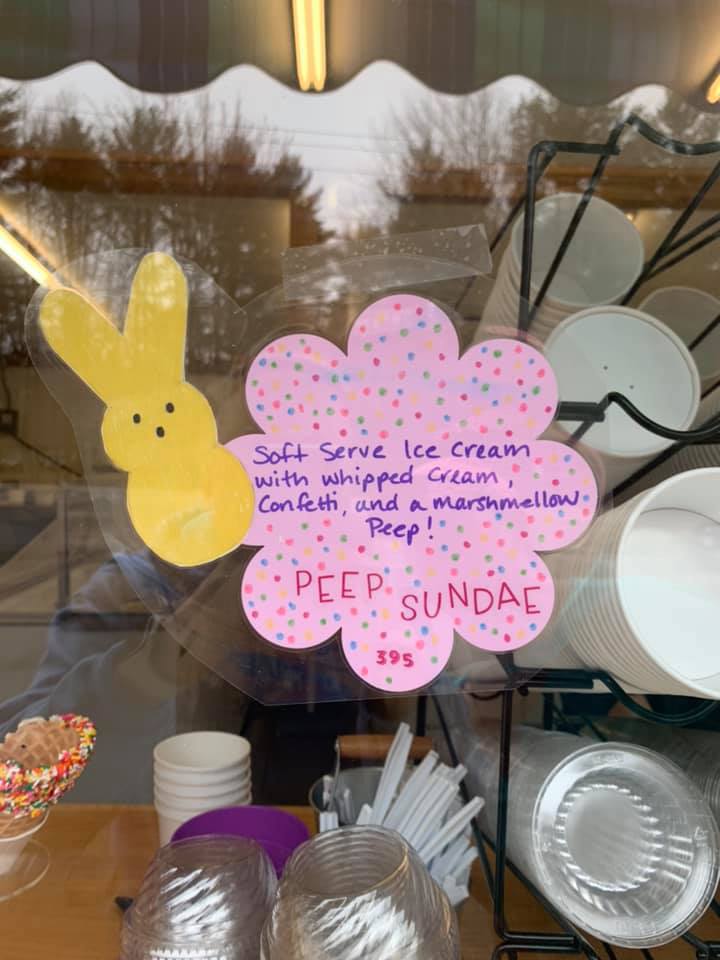 Soft Serve Ice Cream
with whipped Cream,
Confetti, and a marshmellow
Peep!
PEEP SUNDAE
395